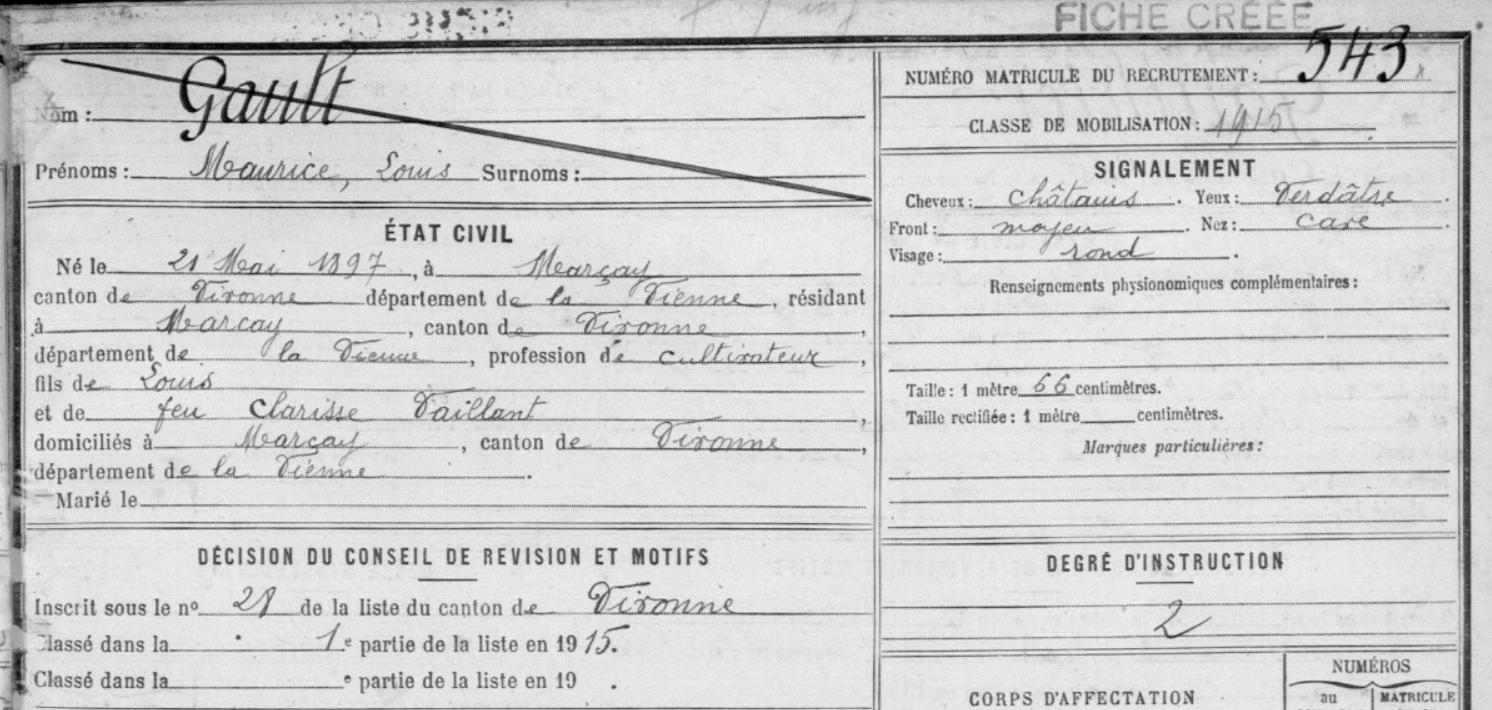 FICHE CRÉÉE
Nom : Gault
Prénoms : Maurice, Louis Surnoms :
ÉTAT CIVIL
Né le 21 Mai 1897, à Marçay
canton de Vivonne département de la Vienne, résidant
à Marcay, canton de Vivonne,
département de la Vienne, profession de cultivateur,
fils de Louis
et de feu Clarisse Vaillant,
domiciliés à Marçay, canton de Vivonne,
département de la Vienne.
Marié le
DÉCISION DU CONSEIL DE REVISION ET MOTIFS
Inscrit sous le nº 28 de la liste du canton de Vivonne
Classé dans la 1e partie de la liste en 1915.
Classé dans la e partie de la liste en 19 .
NUMÉRO MATRICULE DU RECRUTEMENT : 543
CLASSE DE MOBILISATION : 1915
SIGNALEMENT
Cheveux : châtains. Yeux : Verdâtre.
Front : moyen. Nez : cave.
Visage : rond.
Renseignements physionomiques complémentaires :
Taille : 1 mètre 66 centimètres.
Taille rectifiée : 1 mètre centimètres.
Marques particulières :
DEGRÉ D'INSTRUCTION
2
CORPS D'AFFECTATION
NUMÉROS
au
MATRICULE